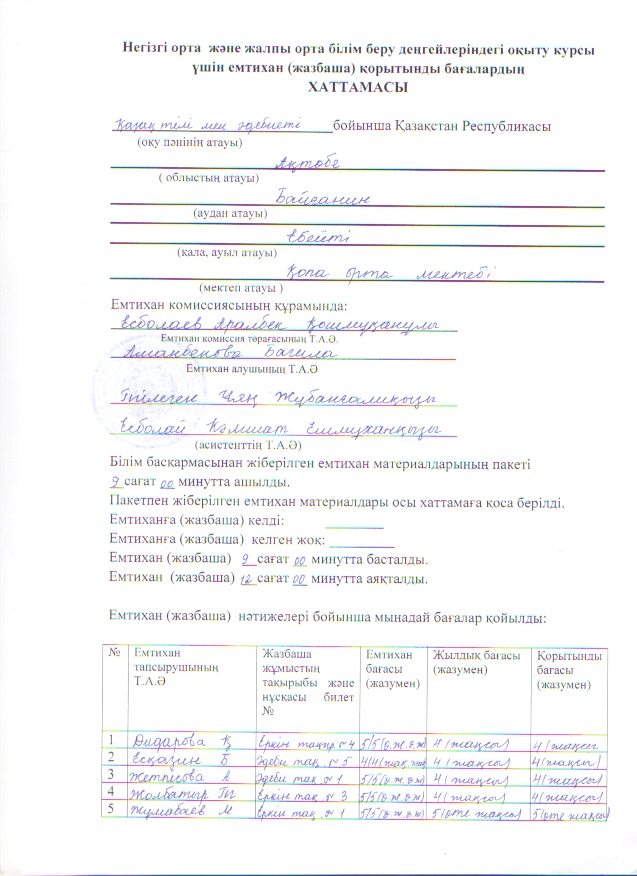 Негізгі орта және жалпы орта білім беру деңгейлеріндегі оқыту курсы
үшін емтихан (жазбаша) қорытынды бағалардың
ХАТТАМАСЫ
Қазақ тілі мен әдебиеті бойынша Қазақстан Республикасы
(оқу пәнінің атауы)
Ақтөбе
( облыстың атауы)
Байғанин
(аудан атауы)
Ебейті
(қала, ауыл атауы)
Қопа орта мектебі
(мектеп атауы )
Емтихан комиссиясының құрамында:
Есболаев Аралбек Қошмұқанұлы
Емтихан комиссия төрағасының Т.А.Ә.
Аманбенова Бағила
Емтихан алушының Т.А.Ә
Тілеген Ұяң Жұбанғалиқызы
Есболай Кәмшат Ешмуханқызы
(асистенттің Т.А.Ә)
Білім басқармасынан жіберілген емтихан материалдарының пакеті
9 сағат 00 минутта ашылды.
Пакетпен жіберілген емтихан материалдары осы хаттамаға қоса берілді.
Емтиханға (жазбаша) келді:
Емтиханға (жазбаша) келген жоқ:
Емтихан (жазбаша) 9 сағат 00 минутта басталды.
Емтихан (жазбаша) 12 сағат 00 минутта аяқталды.
Емтихан (жазбаша) нәтижелері бойынша мынадай бағалар қойылды:
№ Емтихан тапсырушының Т.А.Ә Жазбаша жұмыстың тақырыбы және нұсқасы билет № Емтихан бағасы (жазумен) Жылдық бағасы (жазумен) Қорытынды бағасы (жазумен)
1 Дидарова Қ Еркін тақыр. №4 5/5(ө.ж.ө.ж) 4 (жақсы) 4 (жақсы
2 Есқазин Б Әдеби тақ. №5 4/4(жақ.жақ) 4 (жақсы) 4(жақсы)
3 Жетпісова А Әдеби тақ №1 5/5(ө.ж.ө.ж) 4 (жақсы) 4(жақсы)
4 Жолбатыр Еркін тақ. №3 5/5(ө.ж.ө.ж) 4 (жақсы) 4(жақсы)
5 Жумабаев М Еркін тақ. №1 5/5(ө.ж.ө.ж) 5(өте жақсы) 5(өте жақсы)